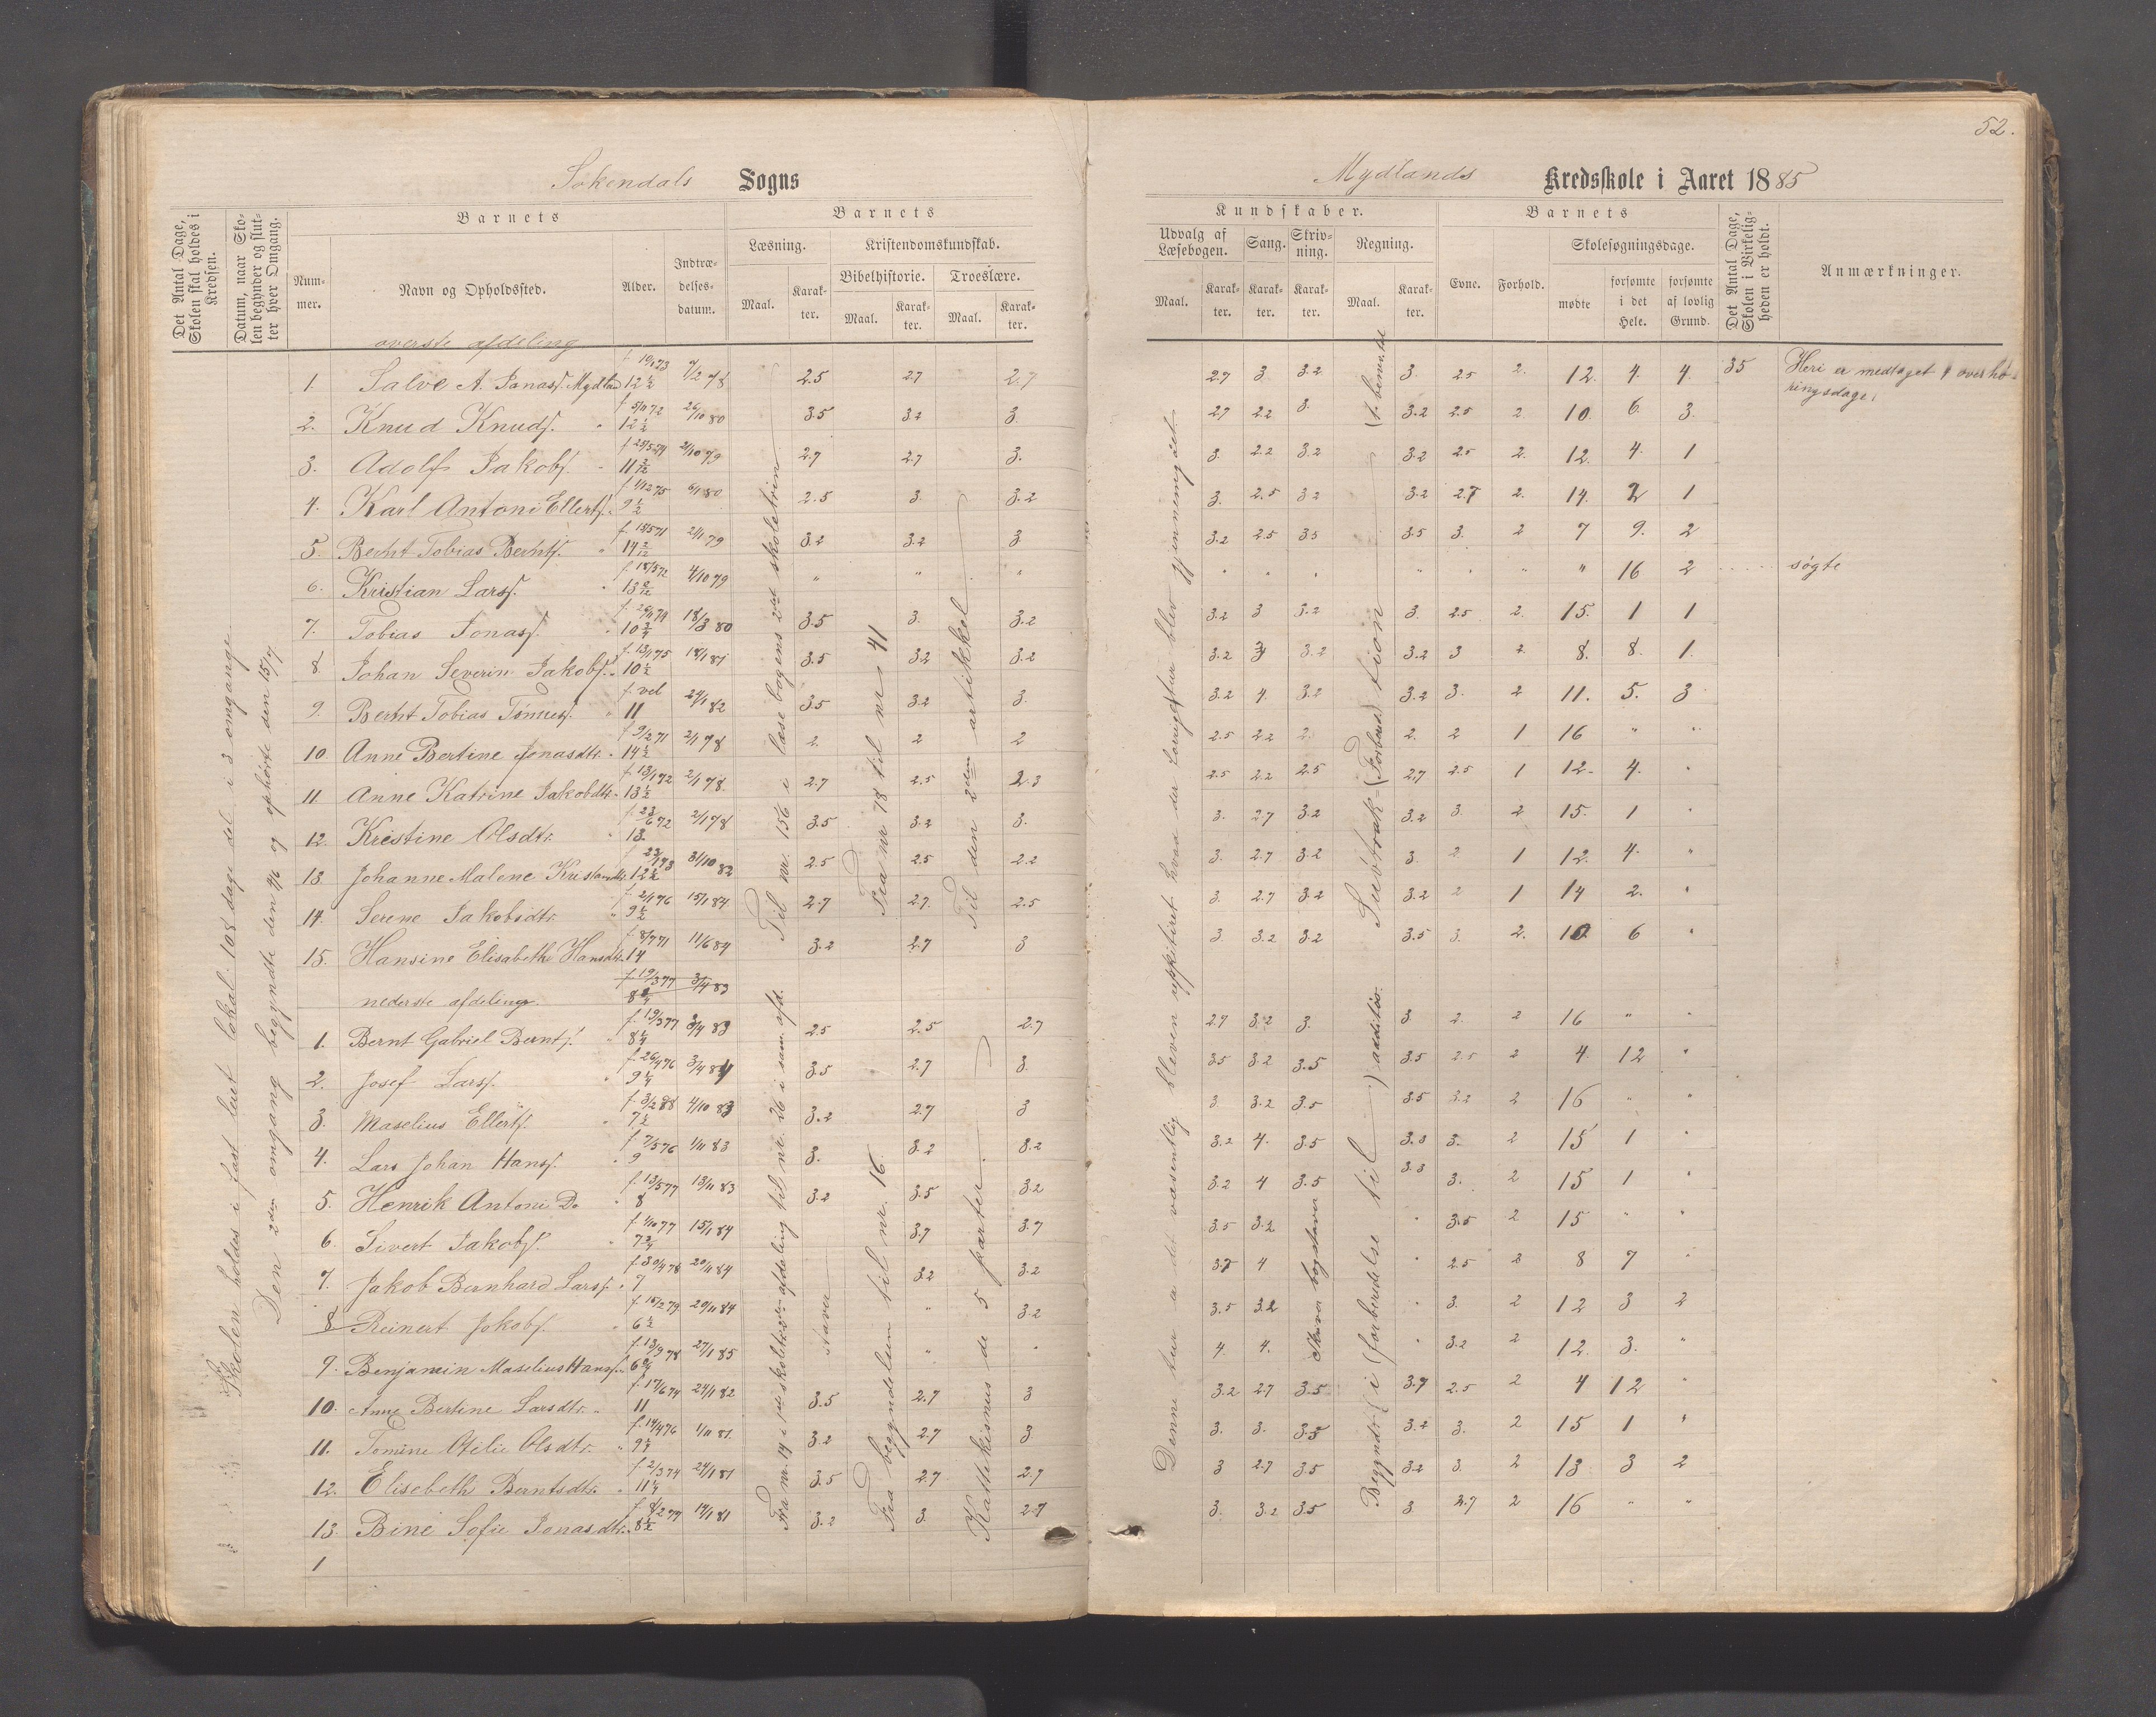 52.
Sokendals Sogns
Mydlands Kredsskole i Aaret 1885
Det Antal Dage, Skolen skal holdes i Kredsen.
Datum, naar Skolen begynder og slutter hver Omgang.
Barnets
Nummer.
Navn og Opholdssted.
Alder.
Indtrædelsesdatum.
Barnets
Læsning.
Kristendomskundskab.
Bibelhistorie.
Troeslære.
Maal.
Karakter.
Maal.
Karakter.
Maal.
Karakter.
Kundskaber.
Udvalg af Læsebogen.
Sang.
Skrivning.
Regning.
Maal.
Karakter.
Karakter.
Karakter.
Maal.
Karakter.
Barnets
Evne.
Forhold.
Skolesøgningsdage.
mødte
forsømte i det Hele.
forsømte af lovlig Grund.
Det Antal Dage, Skolen i Virkeligheden er holdt.
Anmærkninger.
Skolen holdes i fast leiet lokal 108 dage del. i 3 omgange
Den 2den omgang begyndte den og ophørte den 15/7
øverste afdeling
1. Salve A. Jonass. Mydland 12 1/2 2.5 2.7 2.7 2.7 3 3.2 3. 2.5 2. 12. 4. 4. 35
2. Knud Knuds. 12 1/2 26/10 80 3.5 3.2 3. 2.7 2.2 3. 3.2 2.5 2. 10. 6. 3.
3. Adolf Jakobs. 11 2/12 2/10 79 2.7 2.7 3. 3. 2.2 3.2 3.2 2.5 2. 12. 4. 1
4. Karl Antoni Ellerts. 9 1/2 6/1 80 2.5 3 3.2 3. 2.5 3.2 3.2 2.7 2. 14. 2 1
5. Bernt Tobias Bernts. 14 2/12 2/1 79 3.2 3.2 3 3.2 2.5 3.5 3.5 3. 2 7 9. 2
6. Kristian Larss. 13 2/12 4/10 79 " " " " " " " " " " 16 2 søgte
7. Tobias Jonass. 10 3/4 18/3 80 3.5 3. 3.2 3.2 3 3.2 3. 2.5 2. 15. 1 1
8 Johan Severin Jakobs. 10 1/2 18/1 81 3.5 3.2 3.2 3.2 3 3.2 3.2 3 2 8. 8. 1.
9. Bernt Tobias Tønness. f. vel 11 24/1 82 3.5 3.2 3. 3.2 4. 3.2 3.2 3. 2 11. 5. 3
10. Anne Bertine Jonasdtr. f. 9/2 71 14 1/2 2/1 78 2. 2 2 2.5 2.2 2. 2. 2 1 16 " "
11. Anne Katrine Jakobdtr. f. 13/1 72 13 1/2 2/1 78. 2.7 2.5 2.3 2.5 2.2 2.5 2.7 2.5 1 12. 4. "
12. Kristine Olsdtr. 13. 2/1 78 3.5 3.2 3. 3. 2.7 3.2 3.2 3. 2 15. 1 "
13. Johanne Malene 12 1/2 31/10 82 2.5 2.5 2.2 3. 2.7 3.2 3. 2 1 12. 4. "
14. Serene Jakobsdtr. f. 2/1 76 9 1/2 15/1 84. 2.7 2.7. 2.5 3. 2.7 3.2 3.2 2 1 14 2. "
15. Hansine Elisabeth Hansdtr. f. 8/7 71 14 11/6 84 3.2 2.7 3 3 3.2 3.2 3.5 3. 2. 10. 6 "
Heri er medtaget 4 overhøringsdage.
Til nr. 156 i læsebogens 2det skoletrin
Fra nr 78 til nr 41
Til den 2den artikkel
Denne tur
nederste afdeling.
1. Bernt Gabriel Bernts. f. 19/3 77 8 1/4 3/4 83 2.5 2.5 2.7 2.7 3.2 3. 3 2. 2 16 " "
2. Josef Larss. f. 26/4 76 9 1/4 3/4 84 3.5 2.7 3. 3.5 3.2 3.5 3.5 2.5 2 4. 12 "
3. Maselius Ellerts. 7 1/2 4/10 83 3.2 2.7 3 3 3.2 3.5 3.5 3.2 2 16 " "
4. Lars Johan Hanss. f. 7/5 76 9 1/11 83 3. 3.2 3.2 3.2 4. 3.5 3.3 3. 2 15 1 "
5. Henrik Antoni Do f. 13/5 77 8 13/11 83 3.2 3.5 3.2 3.2 4 3.5 3.3 3. 2 15 1 "
6. Sivert Jakobs. f. 1/10 77 7 3/4 15/1 84 3.7 3.7 3.5 3.2 " 3.5 2 15 " "
7. Jakob Bernhard Larss. 7 29/11 84 3.2 3.2 3.7 4 2.5 2 8 7 "
8 Reinert Jokobs. f. 15/2 79 6 1/2 20/11 84 " 3.2 3.5 3.2 " 3. 2 12 3 2
9. Benjamin Maselius Hanss. f. 13/9 78 6 3/4 27/1 85 " " 4. 4. " 3.2 2 12. 3. "
10. Anne Bertine Larsdtr. f. 17/6 74 11 24/1 82 3.5 2.7 3 3.2 2.7 3.5 3.7 2.5 2 4 12 "
11. Tomine Otilie Olsdtr. f. 14/4 76 9 1/4 1/11 81. 3.2 2.7 3 3. 3. 3.5 3.2 3. 2 15 1 "
12. Elisebeth Berntsdtr. f. 2/3 74 11 1/4 24/1 81 3.5 2.7 2.7 3 2.7 3.5 3.2 3. 2 13 3 2
13. Bine Sofie Jonasdtr. 8 1/2 14/1 81 3.2 3. 2.7 3. 3.2 3.5 3. 2.7 2 16 " "
1
Fra nr. 14 i 1ste skoletrins afdeling til nr. 26 i sam. afd.
staver
Fra begyndelsen til nr. 16.
Kattekismus de 5 parter.
Skriver bogstaver
Begyndt (i forberedelse til) addition.